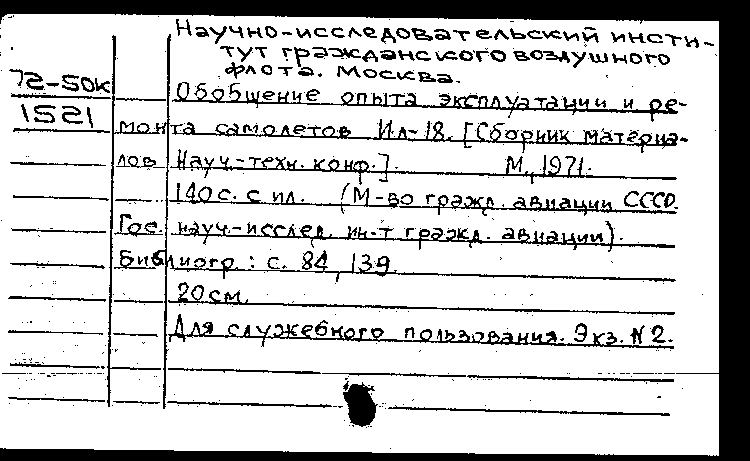 Научно-исследовательский инсти-
тут гражданского воздушного
флота. Москва.
72-50к
Обобщение опыта эксплуатации и ре-
1521
монта самолетов Ил-18. [Сборник материа-
лов Науч.-техн. конф.]. М., 1971.
140 с. с ил. (М-во гражд. авиации СССР.
Гос. науч.-исслед. ин-т гражд. авиации).
Библиогр.: с. 84, 139.
20 см.
Для служебного пользования. Экз. N 2.